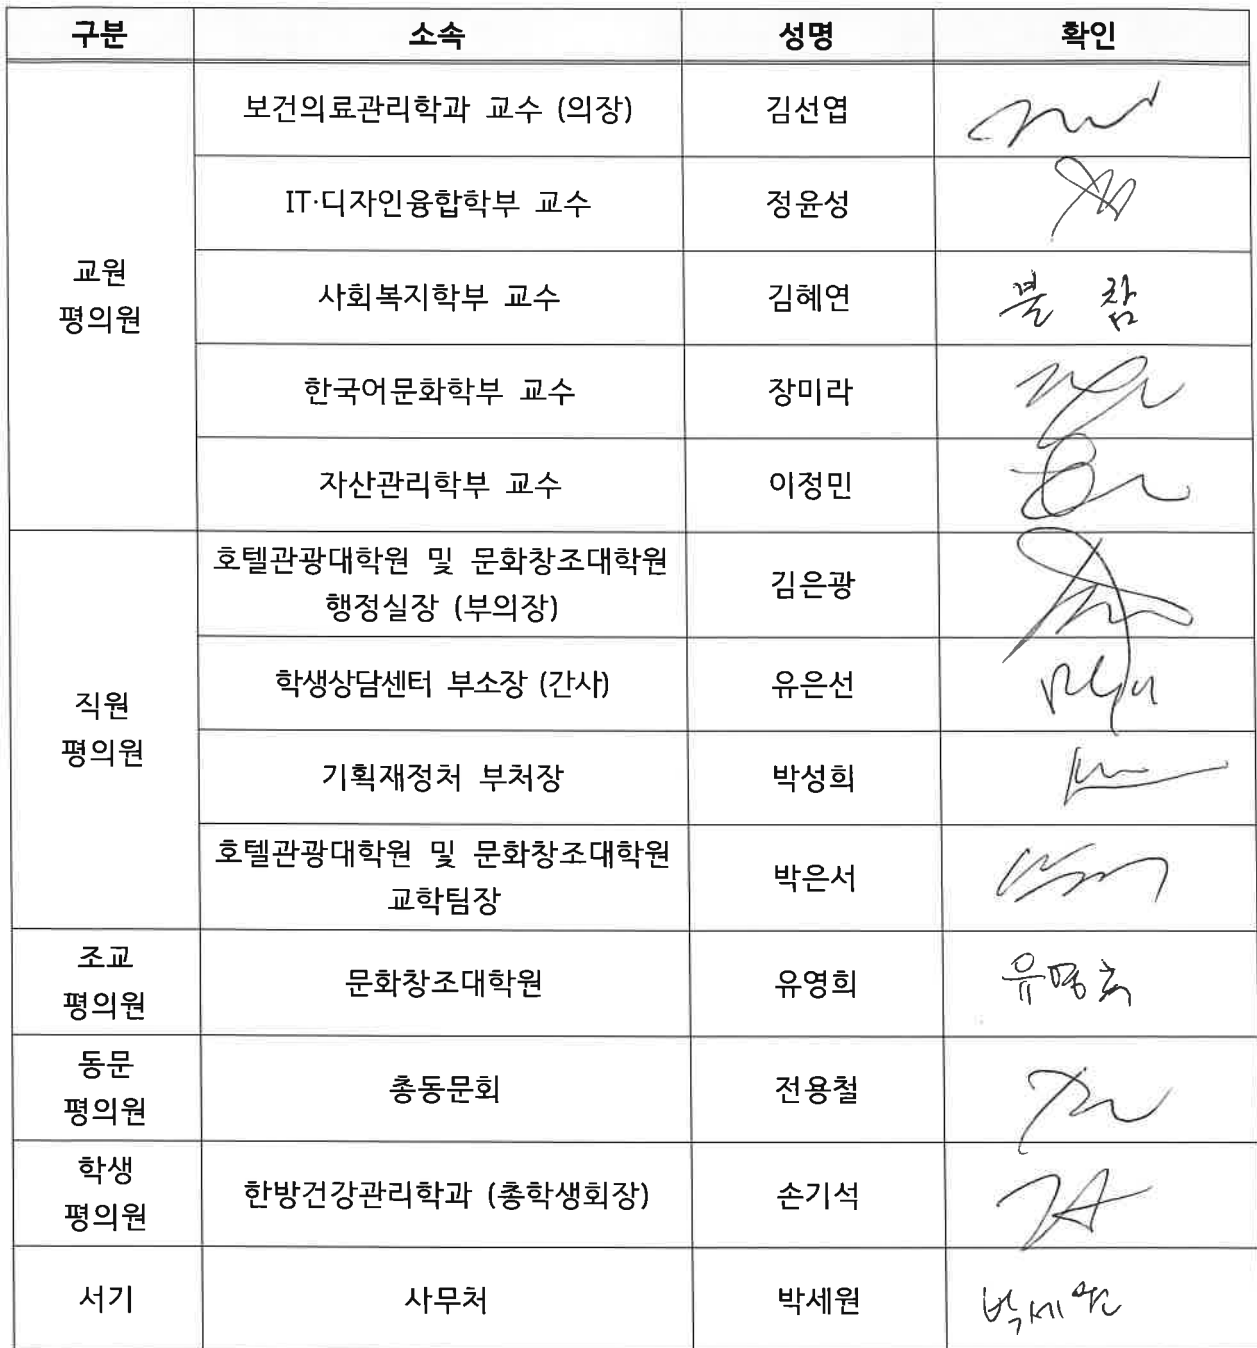 구분 소속 성명 확인
교원
평의원
보건의료관리학과 교수 (의장) 김선엽
IT·디자인융합학부 교수 정윤성
사회복지학부 교수 김혜연 불참
한국어문화학부 교수 장미라
자산관리학부 교수 이정민
직원
평의원
호텔관광대학원 및 문화창조대학원
행정실장 (부의장) 김은광
학생상담센터 부소장 (간사) 유은선
기획재정처 부처장 박성희
호텔관광대학원 및 문화창조대학원
교학팀장 박은서
조교
평의원
문화창조대학원 유영희 유영희
동문
평의원
총동문회 전용철
학생
평의원
한방건강관리학과 (총학생회장) 손기석
서기 사무처 박세원 박세원